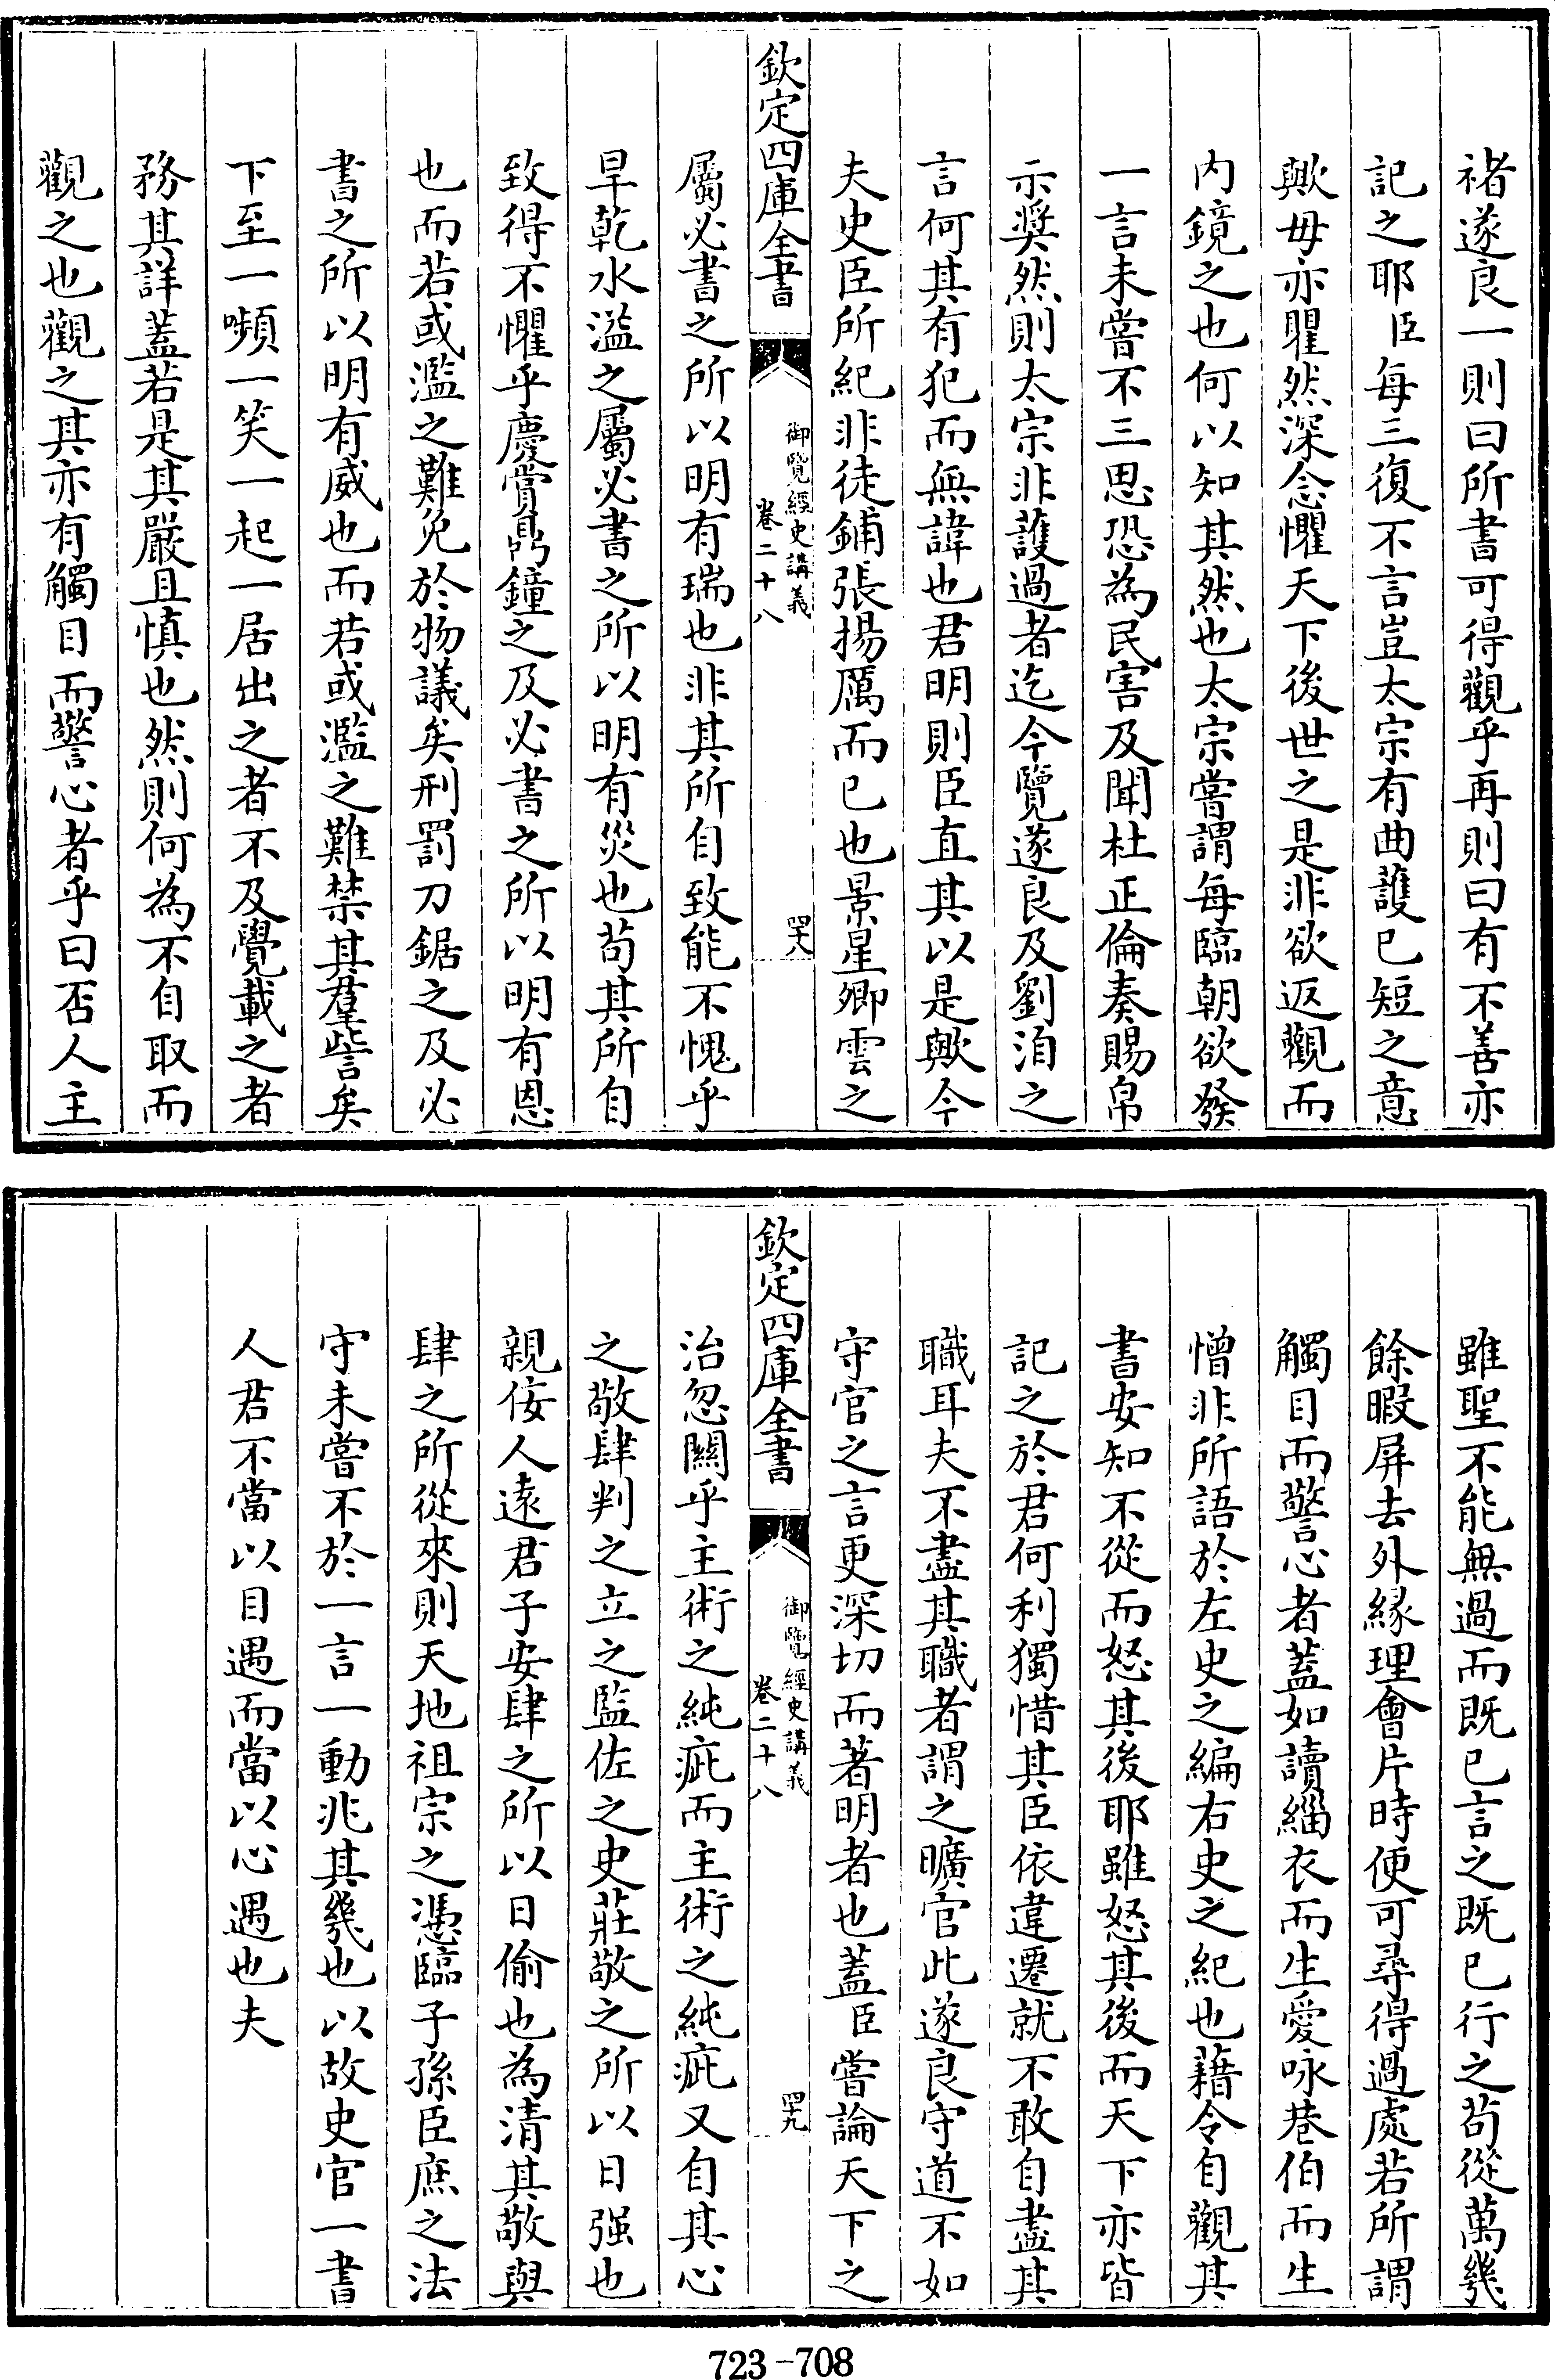 褚遂良一則曰所書可得觀乎再則曰有不善亦
記之耶臣每三復不言豈太宗有曲護已短之意
歟毋亦瞿然深念懼天下後世之是非欲返觀而
内鏡之也何以知其然也太宗嘗謂每臨朝欲發
一言未嘗不三思恐為民害及聞杜正倫奏賜帛
示奨然則太宗非護過者迄今覽遂良及劉洎之
言何其有犯而無諱也君明則臣直其以是歟今
夫史臣所紀非徒鋪張揚厲而已也景星卿雲之
欽定四庫全書
御覽經史講義
卷二十八
四十八
屬必書之所以明有瑞也非其所自致能不愧乎
旱乾水溢之屬必書之所以明有災也苟其所自
致得不懼乎慶賞鼎鐘之及必書之所以明有恩
也而若或濫之難免於物議矣刑罰刀鋸之及必
書之所以明有威也而若或濫之難禁其羣訾矣
下至一嚬一笑一起一居出之者不及覺載之者
務其詳蓋若是其嚴且慎也然則何為不自取而
觀之也觀之其亦有觸目而警心者乎曰否人主
雖聖不能無過而既已言之既已行之苟從萬幾
餘暇屏去外緣理會片時便可尋得過處若所謂
觸目而警心者蓋如讀緇衣而生愛咏巷伯而生
憎非所語於左史之編右史之紀也藉令自觀其
書安知不從而怒其後耶雖怒其後而天下亦皆
記之於君何利獨惜其臣依違遷就不敢自盡其
職耳夫不盡其職者謂之曠官此遂良守道不如
守官之言更深切而著明者也蓋臣嘗論天下之
欽定四庫全書
御覽經史講義
卷二十八
四十九
治忽關乎主術之純疵而主術之純疵又自其心
之敬肆判之立之監佐之史莊敬之所以日强也
親佞人遠君子安肆之所以日偷也為清其敬與
肆之所從來則天地祖宗之憑臨子孫臣庶之法
守未嘗不於一言一動兆其幾也以故史官一書
人君不當以目遇而當以心遇也夫
723-708